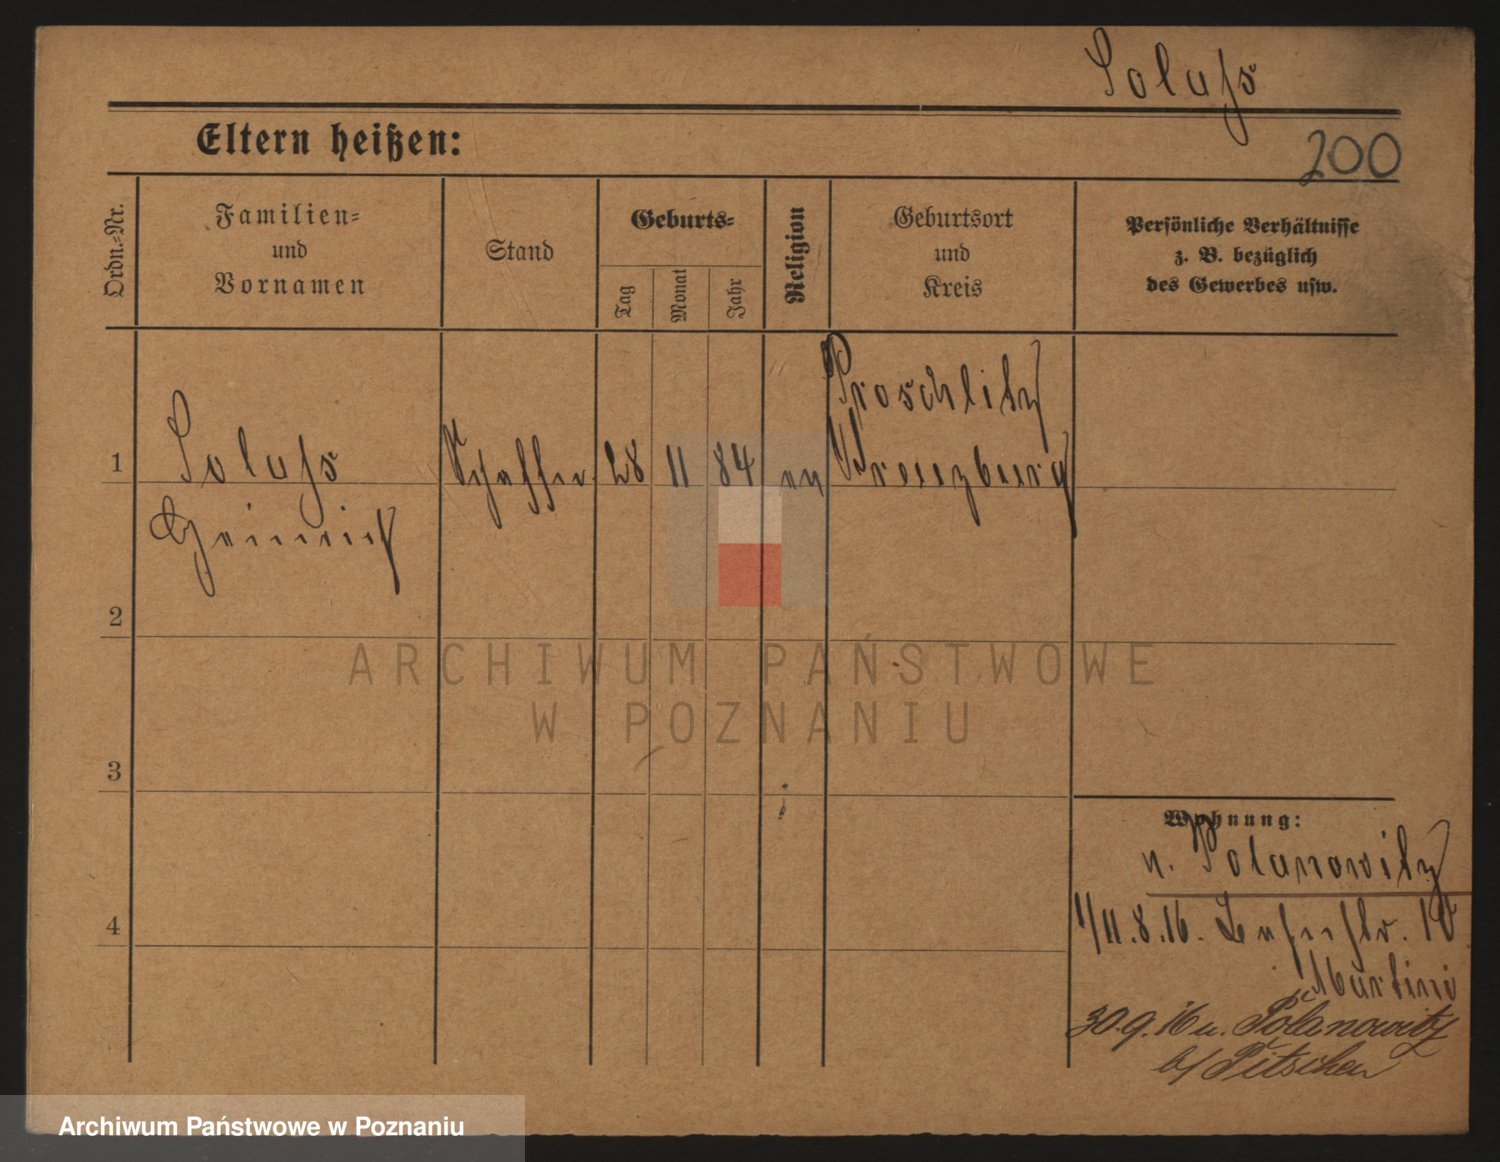 Soluſs
200
Eltern heißen:
Ordn.-Nr.
Familien-
und
Vornamen
Stand
Geburts-
Tag
Monat
Jahr
Religion
Geburtsort
und
Kreis
Persönliche Verhältnisse
z. B. bezüglich
des Gewerbes usw.
Proschlitz
1
Soluſs
Schaffer
28
11
84
ev
Kreuzburg
Heinrich
2
3
4
Wohnung:
n. Polanowitz
1/11.8.16.
Martini
30.9.16 n. Polanowitz
b/ Pitschen
ARCHIWUM PAŃSTWOWE
W POZNANIU
Archiwum Państwowe w Poznaniu